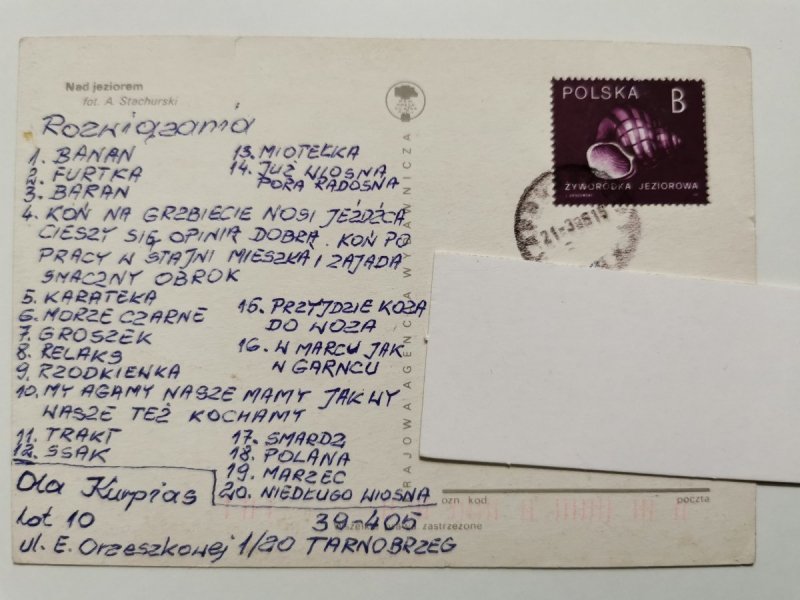 Nad jeziorem
fot. A. Stachurski
Rozwiązania
1. BANAN
2. FURTKA
3. BARAN
13. MIOTEŁKA
14. JUŻ WIOSNA
PORA RADOSNA
4. KOŃ NA GRZBIECIE NOSI JEŹDŹCA
CIESZY SIĘ OPINIĄ DOBRĄ. KOŃ PO
PRACY W STAJNI MIESZKA I ZAJADA
SMACZNY OBROK
5. KARATEKA
6. MORZE CZARNE
7. GROSZEK
8. RELAKS
9. RZODKIEWKA
15. PRZYJDZIE KOZA
DO WOZA
16. W MARCU JAK
W GARNCU
10. MY AGAMY NASZE MAMY JAK WY
WASZE TEŻ KOCHAMY
11. TRAKT
12. SSAK
17. SMARDZ
18. POLANA
19. MARZEC
20. NIEDŁUGO WIOSNA
Ola Kurpias
Lat 10
39-405
ul. E. Orzeszkowej 1/20 TARNOBRZEG
RAJOWA AGENCJA WYDAWNICZA
POLSKA B
ŻYWORODKA JEZIOROWA
ozn. kod
poczta
zastrzeżone